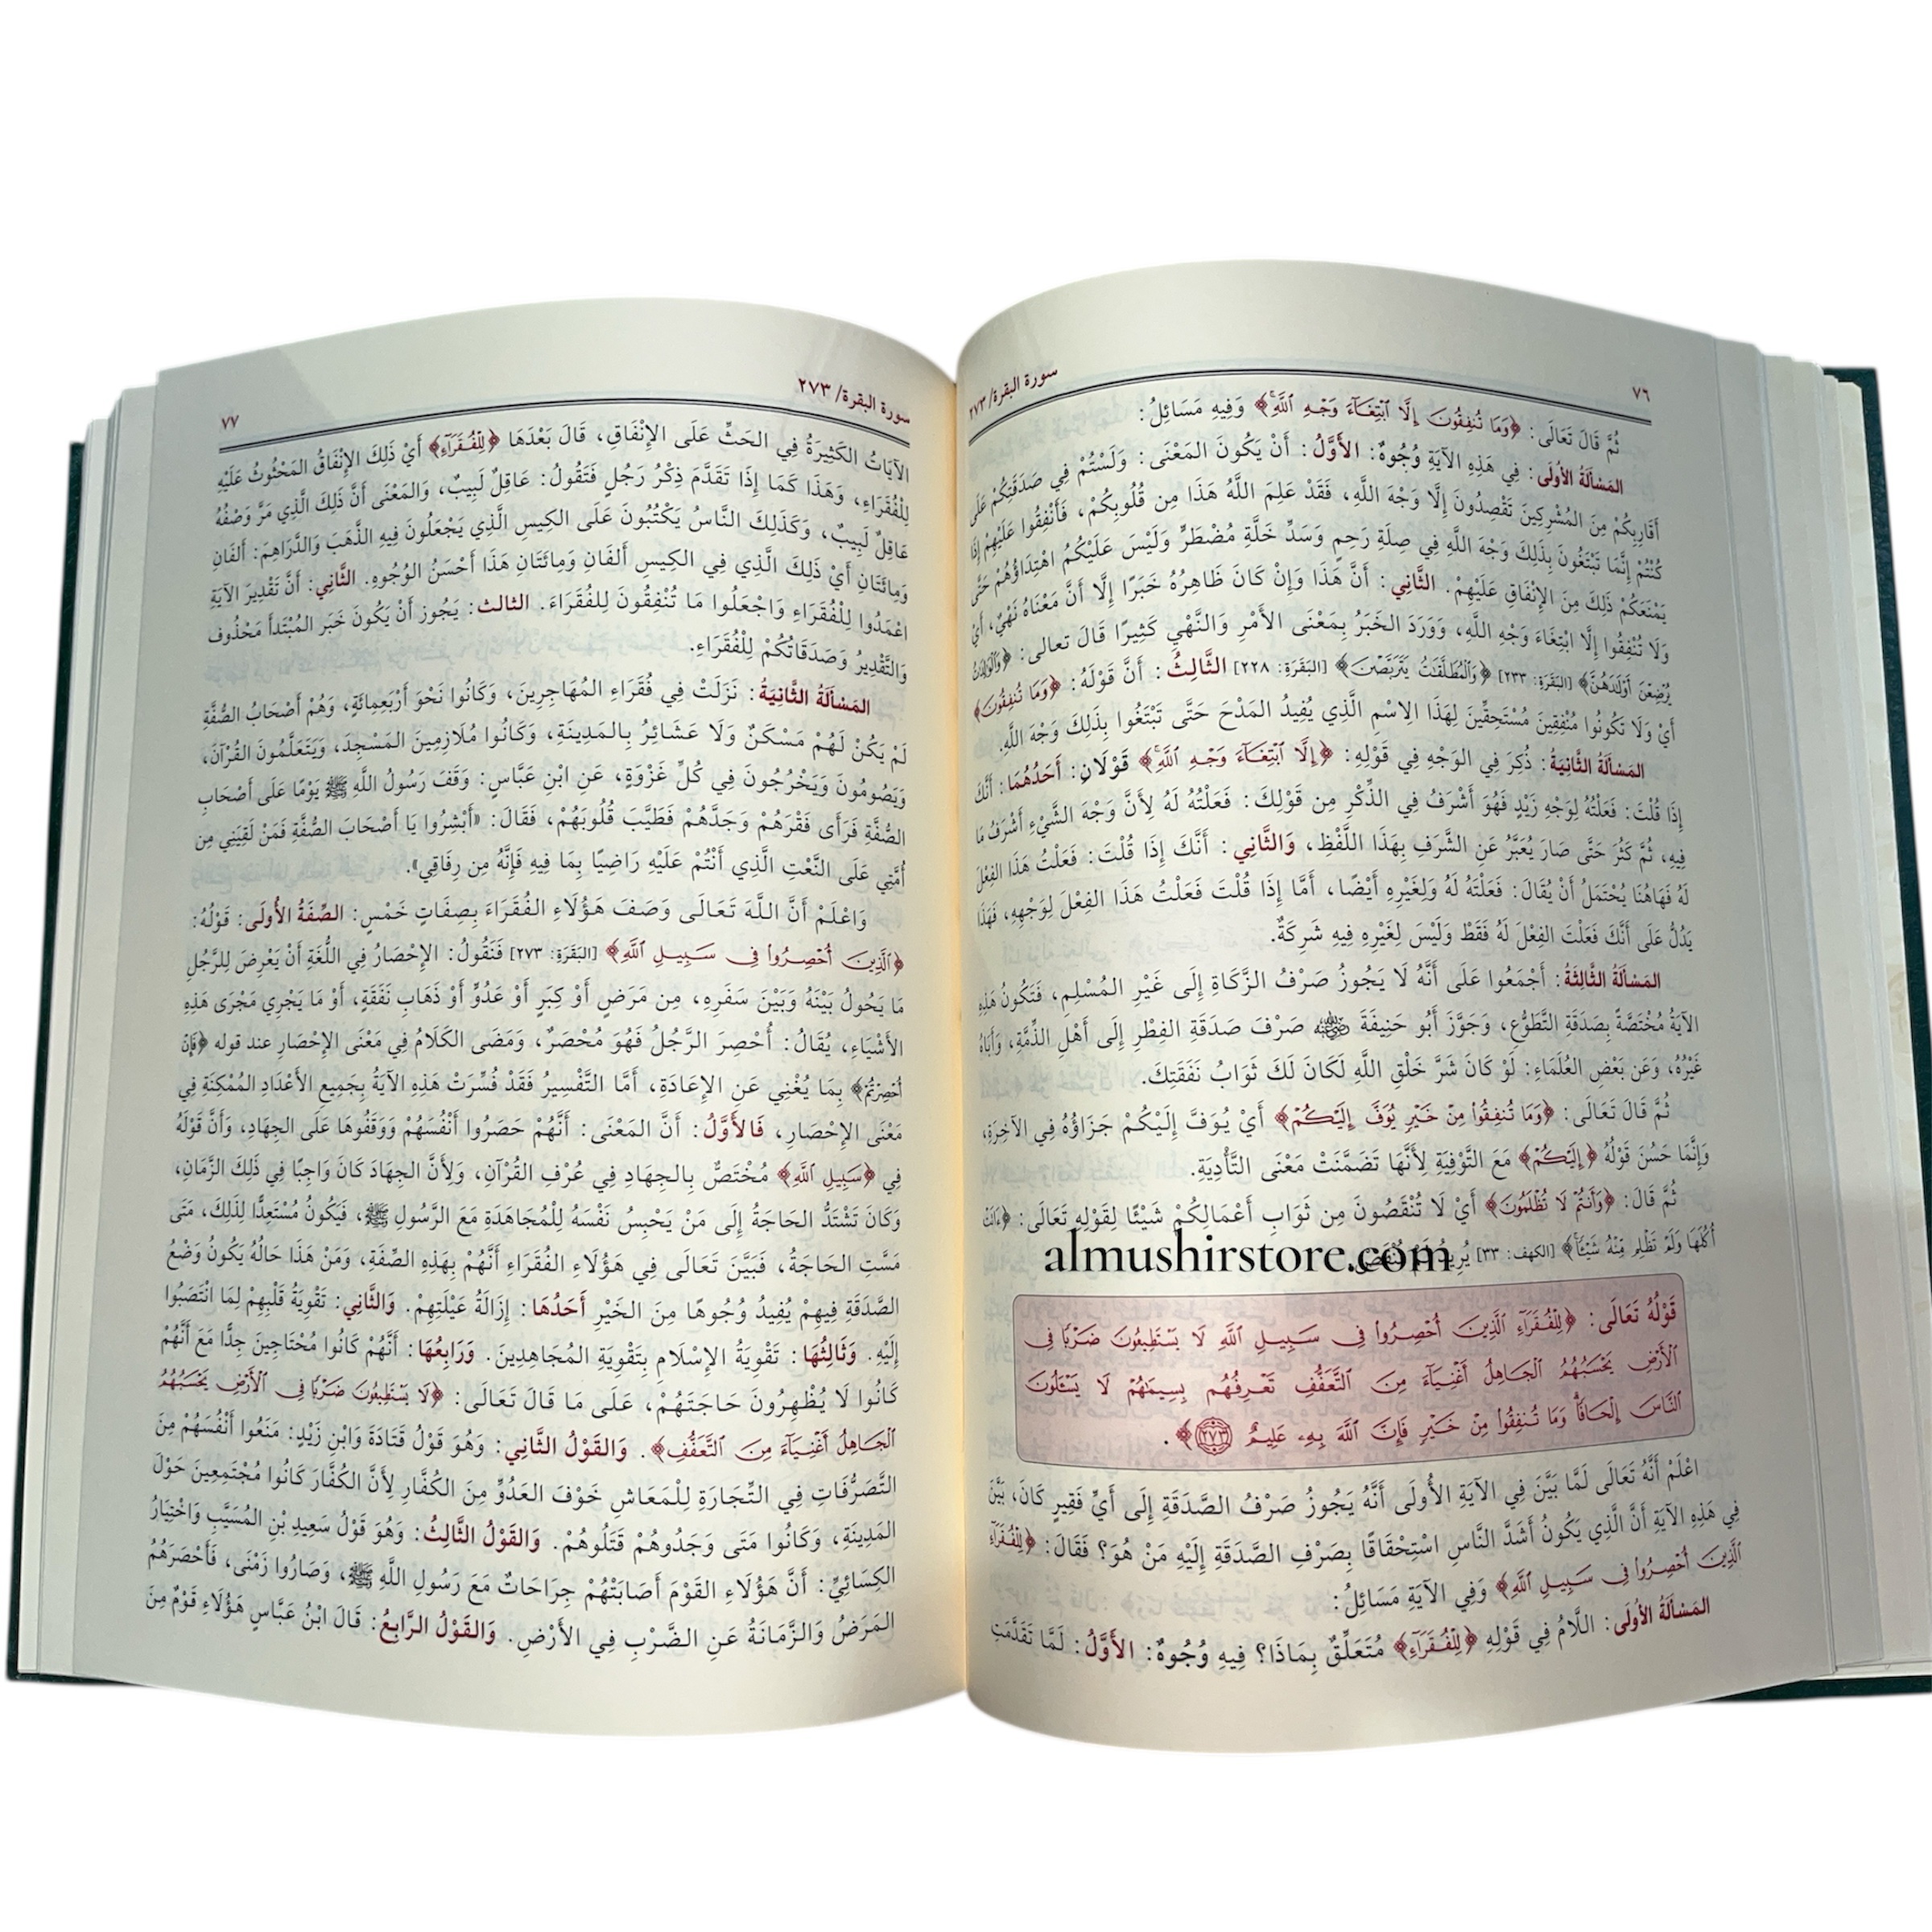 ٧٦
سورة البقرة/ ٢٧٣
ثُمَّ قَالَ تَعَالَى: ﴿وَمَا تُنفِقُونَ إِلَّا ٱبْتِغَآءَ وَجْهِ ٱللَّهِ﴾ وَفِيهِ مَسَائِلُ:
المَسْأَلَةُ الأُولَى: فِي هَذِهِ الآيَةِ وُجُوهٌ: الأَوَّلُ: أَنْ يَكُونَ المَعْنَى: وَلَسْتُمْ فِي صَدَقَتِكُمْ عَلَى
أَقَارِبِكُمْ مِنَ المُشْرِكِينَ تَقْصِدُونَ إِلَّا وَجْهَ اللَّهِ، فَقَدْ عَلِمَ اللَّهُ هَذَا مِن قُلُوبِكُمْ، فَأَنْفِقُوا عَلَيْهِمْ إِذَا
كُنْتُمْ إِنَّمَا تَبْتَغُونَ بِذَلِكَ وَجْهَ اللَّهِ فِي صِلَةِ رَحِمٍ وَسَدِّ خَلَّةِ مُضْطَرٍّ وَلَيْسَ عَلَيْكُمُ اهْتِدَاؤُهُمْ حَتَّى
يَمْنَعَكُمْ ذَلِكَ مِنَ الإِنْفَاقِ عَلَيْهِمْ. الثَّانِي: أَنَّ هَذَا وَإِنْ كَانَ ظَاهِرُهُ خَبَرًا إِلَّا أَنَّ مَعْنَاهُ نَهْيٌ، أَيْ
وَلَا تُنْفِقُوا إِلَّا ابْتِغَاءَ وَجْهِ اللَّهِ، وَوَرَدَ الخَبَرُ بِمَعْنَى الأَمْرِ وَالنَّهْيِ كَثِيرًا قَالَ تعالى: ﴿وَٱلْوَٰلِدَٰتُ
يُرْضِعْنَ أَوْلَٰدَهُنَّ﴾ [البَقَرَةِ: ٢٣٣] ﴿وَٱلْمُطَلَّقَٰتُ يَتَرَبَّصْنَ﴾ [البَقَرَةِ: ٢٢٨] الثَّالِثُ: أَنَّ قَوْلَهُ: ﴿وَمَا تُنفِقُونَ﴾
أَيْ وَلَا تَكُونُوا مُنْفِقِينَ مُسْتَحِقِّينَ لِهَذَا الِاسْمِ الَّذِي يُفِيدُ المَدْحَ حَتَّى تَبْتَغُوا بِذَلِكَ وَجْهَ اللَّهِ.
المَسْأَلَةُ الثَّانِيَةُ: ذُكِرَ فِي الوَجْهِ فِي قَوْلِهِ: ﴿إِلَّا ٱبْتِغَآءَ وَجْهِ ٱللَّهِ﴾ قَوْلَانِ: أَحَدُهُمَا: أَنَّكَ
إِذَا قُلْتَ: فَعَلْتُهُ لِوَجْهِ زَيْدٍ فَهُوَ أَشْرَفُ فِي الذِّكْرِ مِن قَوْلِكَ: فَعَلْتُهُ لَهُ لِأَنَّ وَجْهَ الشَّيْءِ أَشْرَفُ مَا
فِيهِ، ثُمَّ كَثُرَ حَتَّى صَارَ يُعَبَّرُ عَنِ الشَّرَفِ بِهَذَا اللَّفْظِ، وَالثَّانِي: أَنَّكَ إِذَا قُلْتَ: فَعَلْتُ هَذَا الفِعْلَ
لَهُ فَهَاهُنَا يُحْتَمَلُ أَنْ يُقَالَ: فَعَلْتَهُ لَهُ وَلِغَيْرِهِ أَيْضًا، أَمَّا إِذَا قُلْتَ فَعَلْتُ هَذَا الفِعْلَ لِوَجْهِهِ، فَهَذَا
يَدُلُّ عَلَى أَنَّكَ فَعَلْتَ الفِعْلَ لَهُ فَقَطْ وَلَيْسَ لِغَيْرِهِ فِيهِ شَرِكَةٌ.
المَسْأَلَةُ الثَّالِثَةُ: أَجْمَعُوا عَلَى أَنَّهُ لَا يَجُوزُ صَرْفُ الزَّكَاةِ إِلَى غَيْرِ المُسْلِمِ، فَتَكُونُ هَذِهِ
الآيَةُ مُخْتَصَّةً بِصَدَقَةِ التَّطَوُّعِ، وَجَوَّزَ أَبُو حَنِيفَةَ رضي الله عنه صَرْفَ صَدَقَةِ الفِطْرِ إِلَى أَهْلِ الذِّمَّةِ، وَأَبَاهُ
غَيْرُهُ، وَعَن بَعْضِ العُلَمَاءِ: لَوْ كَانَ شَرَّ خَلْقِ اللَّهِ لَكَانَ لَكَ ثَوَابُ نَفَقَتِكَ.
ثُمَّ قَالَ تَعَالَى: ﴿وَمَا تُنفِقُوا۟ مِنْ خَيْرٍ يُوَفَّ إِلَيْكُمْ﴾ أَيْ يُوَفَّ إِلَيْكُمْ جَزَاؤُهُ فِي الآخِرَةِ،
وَإِنَّمَا حَسُنَ قَوْلُهُ ﴿إِلَيْكُمْ﴾ مَعَ التَّوْفِيَةِ لِأَنَّهَا تَضَمَّنَتْ مَعْنَى التَّأْدِيَةِ.
ثُمَّ قَالَ: ﴿وَأَنتُمْ لَا تُظْلَمُونَ﴾ أَيْ لَا تُنْقَصُونَ مِن ثَوَابِ أَعْمَالِكُمْ شَيْئًا لِقَوْلِهِ تَعَالَى: ﴿ءَاتَتْ
أُكُلَهَا وَلَمْ تَظْلِم مِّنْهُ شَيْـًٔا﴾ [الكهف: ٣٣] يُرِيدُ
almushirstore.com
قَوْلُهُ تَعَالَى: ﴿لِلْفُقَرَآءِ ٱلَّذِينَ أُحْصِرُوا۟ فِى سَبِيلِ ٱللَّهِ لَا يَسْتَطِيعُونَ ضَرْبًا فِى
ٱلْأَرْضِ يَحْسَبُهُمُ ٱلْجَاهِلُ أَغْنِيَآءَ مِنَ ٱلتَّعَفُّفِ تَعْرِفُهُم بِسِيمَٰهُمْ لَا يَسْـَٔلُونَ
ٱلنَّاسَ إِلْحَافًا وَمَا تُنفِقُوا۟ مِنْ خَيْرٍ فَإِنَّ ٱللَّهَ بِهِۦ عَلِيمٌ ٢٧٣﴾.
اعْلَمْ أَنَّهُ تَعَالَى لَمَّا بَيَّنَ فِي الآيَةِ الأُولَى أَنَّهُ يَجُوزُ صَرْفُ الصَّدَقَةِ إِلَى أَيِّ فَقِيرٍ كَانَ، بَيَّنَ
فِي هَذِهِ الآيَةِ أَنَّ الَّذِي يَكُونُ أَشَدَّ النَّاسِ اسْتِحْقَاقًا بِصَرْفِ الصَّدَقَةِ إِلَيْهِ مَنْ هُوَ؟ فَقَالَ: ﴿لِلْفُقَرَآءِ
ٱلَّذِينَ أُحْصِرُوا۟ فِى سَبِيلِ ٱللَّهِ﴾ وَفِي الآيَةِ مَسَائِلُ:
المَسْأَلَةُ الأُولَى: اللَّامُ فِي قَوْلِهِ ﴿لِلْفُقَرَآءِ﴾ مُتَعَلِّقٌ بِمَاذَا؟ فِيهِ وُجُوهٌ: الأَوَّلُ: لَمَّا تَقَدَّمَتِ
سورة البقرة/ ٢٧٣
٧٧
الآيَاتُ الكَثِيرَةُ فِي الحَثِّ عَلَى الإِنْفَاقِ، قَالَ بَعْدَهَا ﴿لِلْفُقَرَآءِ﴾ أَيْ ذَلِكَ الإِنْفَاقُ المَحْثُوثُ عَلَيْهِ
لِلْفُقَرَاءِ، وَهَذَا كَمَا إِذَا تَقَدَّمَ ذِكْرُ رَجُلٍ فَتَقُولُ: عَاقِلٌ لَبِيبٌ، وَالمَعْنَى أَنَّ ذَلِكَ الَّذِي مَرَّ وَصْفُهُ
عَاقِلٌ لَبِيبٌ، وَكَذَلِكَ النَّاسُ يَكْتُبُونَ عَلَى الكِيسِ الَّذِي يَجْعَلُونَ فِيهِ الذَّهَبَ وَالدَّرَاهِمَ: أَلفَانِ
وَمِائَتَانِ أَيْ ذَلِكَ الَّذِي فِي الكِيسِ أَلفَانِ وَمِائَتَانِ هَذَا أَحْسَنُ الوُجُوهِ. الثَّانِي: أَنَّ تَقْدِيرَ الآيَةِ
اعْمَدُوا لِلْفُقَرَاءِ وَاجْعَلُوا مَا تُنْفِقُونَ لِلفُقَرَاءِ. الثالث: يَجُوز أَنْ يَكُونَ خَبَر المُبْتَدأ مَحْذُوف
وَالتَّقْدِيرُ وَصَدَقَاتُكُمْ لِلْفُقَرَاءِ.
المَسْأَلَةُ الثَّانِيَةُ: نَزَلَتْ فِي فُقَرَاءِ المُهَاجِرِينَ، وَكَانُوا نَحْوَ أَرْبَعِمِائَةٍ، وَهُمْ أَصْحَابُ الصُّفَّةِ
لَمْ يَكُنْ لَهُمْ مَسْكَنٌ وَلَا عَشَائِرُ بِالمَدِينَةِ، وَكَانُوا مُلَازِمِينَ المَسْجِدَ، وَيَتَعَلَّمُونَ القُرْآنَ،
وَيَصُومُونَ وَيَخْرُجُونَ فِي كُلِّ غَزْوَةٍ، عَنِ ابْنِ عَبَّاسٍ: وَقَفَ رَسُولُ اللَّهِ ﷺ يَوْمًا عَلَى أَصْحَابِ
الصُّفَّةِ فَرَأَى فَقْرَهُمْ وَجَدَّهُمْ فَطَيَّبَ قُلُوبَهُمْ، فَقَالَ: «أَبْشِرُوا يَا أَصْحَابَ الصُّفَّةِ فَمَنْ لَقِيَنِي مِن
أُمَّتِي عَلَى النَّعْتِ الَّذِي أَنْتُمْ عَلَيْهِ رَاضِيًا بِمَا فِيهِ فَإِنَّهُ مِن رِفَاقِي».
وَاعْلَمْ أَنَّ اللَّهَ تَعَالَى وَصَفَ هَؤُلَاءِ الفُقَرَاءَ بِصِفَاتٍ خَمْسٍ: الصِّفَةُ الأُولَى: قَوْلُهُ:
﴿ٱلَّذِينَ أُحْصِرُوا۟ فِى سَبِيلِ ٱللَّهِ﴾ [البَقَرَةِ: ٢٧٣] فَنَقُولُ: الإِحْصَارُ فِي اللُّغَةِ أَنْ يَعْرِضَ لِلرَّجُلِ
مَا يَحُولُ بَيْنَهُ وَبَيْنَ سَفَرِهِ، مِن مَرَضٍ أَوْ كِبَرٍ أَوْ عَدُوٍّ أَوْ ذَهَابِ نَفَقَةٍ، أَوْ مَا يَجْرِي مَجْرَى هَذِهِ
الأَشْيَاءِ، يُقَالُ: أُحْصِرَ الرَّجُلُ فَهُوَ مُحْصَرٌ، وَمَضَى الكَلَامُ فِي مَعْنَى الإِحْصَارِ عند قوله ﴿فَإِنْ
أُحْصِرْتُمْ﴾ بِمَا يُغْنِي عَنِ الإِعَادَةِ، أَمَّا التَّفْسِيرُ فَقَدْ فُسِّرَتْ هَذِهِ الآيَةُ بِجَمِيعِ الأَعْدَادِ المُمْكِنَةِ فِي
مَعْنَى الإِحْصَارِ، فَالأَوَّلُ: أَنَّ المَعْنَى: أَنَّهُمْ حَصَرُوا أَنْفُسَهُمْ وَوَقَفُوهَا عَلَى الجِهَادِ، وَأَنَّ قَوْلَهُ
فِي ﴿سَبِيلِ ٱللَّهِ﴾ مُخْتَصٌّ بِالجِهَادِ فِي عُرْفِ القُرْآنِ، وَلِأَنَّ الجِهَادَ كَانَ وَاجِبًا فِي ذَلِكَ الزَّمَانِ،
وَكَانَ تَشْتَدُّ الحَاجَةُ إِلَى مَنْ يَحْبِسُ نَفْسَهُ لِلْمُجَاهَدَةِ مَعَ الرَّسُولِ ﷺ، فَيَكُونُ مُسْتَعِدًّا لِذَلِكَ، مَتَى
مَسَّتِ الحَاجَةُ، فَبَيَّنَ تَعَالَى فِي هَؤُلَاءِ الفُقَرَاءِ أَنَّهُمْ بِهَذِهِ الصِّفَةِ، وَمَنْ هَذَا حَالُهُ يَكُونُ وَضْعُ
الصَّدَقَةِ فِيهِمْ يُفِيدُ وُجُوهًا مِنَ الخَيْرِ أَحَدُهَا: إِزَالَةُ عَيْلَتِهِمْ. وَالثَّانِي: تَقْوِيَةُ قَلْبِهِمْ لِمَا انْتَصَبُوا
إِلَيْهِ. وَثَالِثُهَا: تَقْوِيَةُ الإِسْلَامِ بِتَقْوِيَةِ المُجَاهِدِينَ. وَرَابِعُهَا: أَنَّهُمْ كَانُوا مُحْتَاجِينَ جِدًّا مَعَ أَنَّهُمْ
كَانُوا لَا يُظْهِرُونَ حَاجَتَهُمْ، عَلَى مَا قَالَ تَعَالَى: ﴿لَا يَسْتَطِيعُونَ ضَرْبًا فِى ٱلْأَرْضِ يَحْسَبُهُمُ
ٱلْجَاهِلُ أَغْنِيَآءَ مِنَ ٱلتَّعَفُّفِ﴾. وَالقَوْلُ الثَّانِي: وَهُوَ قَوْلُ قَتَادَةَ وَابْنِ زَيْدٍ: مَنَعُوا أَنْفُسَهُمْ مِنَ
التَّصَرُّفَاتِ فِي التِّجَارَةِ لِلْمَعَاشِ خَوْفَ العَدُوِّ مِنَ الكُفَّارِ لِأَنَّ الكُفَّارَ كَانُوا مُجْتَمِعِينَ حَوْلَ
المَدِينَةِ، وَكَانُوا مَتَى وَجَدُوهُمْ قَتَلُوهُمْ. وَالقَوْلُ الثَّالِثُ: وَهُوَ قَوْلُ سَعِيدِ بْنِ المُسَيَّبِ وَاخْتِيَارُ
الكِسَائِيِّ: أَنَّ هَؤُلَاءِ القَوْمَ أَصَابَتْهُمْ جِرَاحَاتٌ مَعَ رَسُولِ اللَّهِ ﷺ، وَصَارُوا زَمْنَى، فَأَحْصَرَهُمُ
المَرَضُ وَالزَّمَانَةُ عَنِ الضَّرْبِ فِي الأَرْضِ. وَالقَوْلُ الرَّابِعُ: قَالَ ابْنُ عَبَّاسٍ هَؤُلَاءِ قَوْمٌ مِنَ